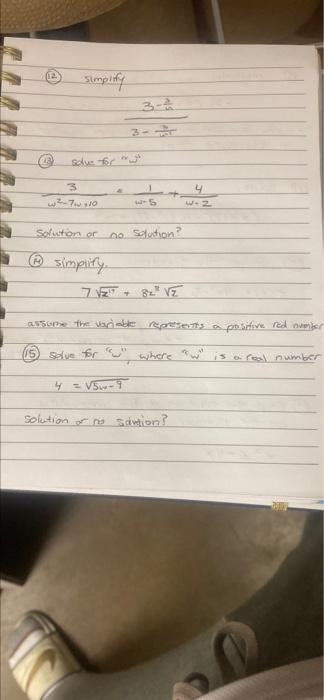 12 simplify
3 -
3 -
13 solve for "w"
3/(w²-7w+10) = 1/(w-5) + 4/(w-2)
Solution or no solution?
14 simplify.
7√z + 8z √z
assume the variable represents a positive real number
15 solve for "w", where "w" is a real number
4 = √5w-9
solution or no solution?